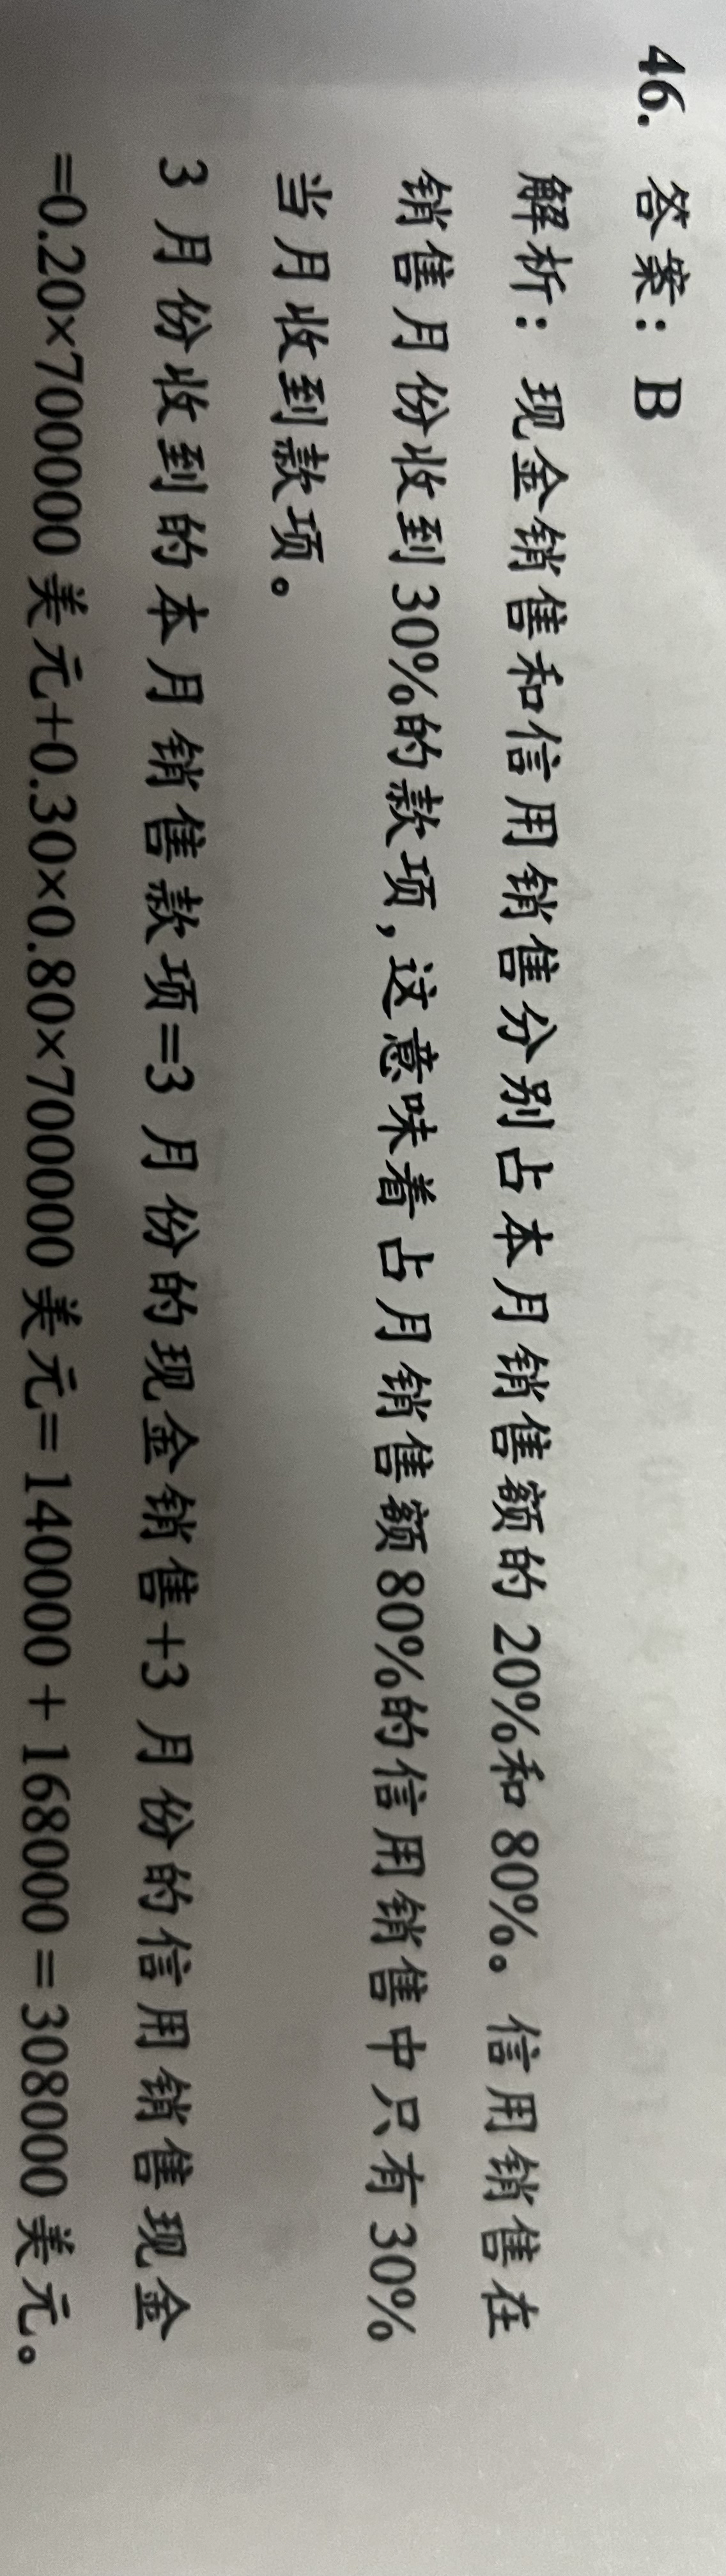 46. 答案：B
解析：现金销售和信用销售分别占本月销售额的 20%和 80%。信用销售在
销售月份收到30%的款项,这意味着占月销售额80%的信用销售中只有30%
当月收到款项。
3 月份收到的本月销售款项=3 月份的现金销售+3 月份的信用销售现金
=0.20×700000 美元+0.30×0.80×700000 美元= 140000 + 168000 = 308000 美元。